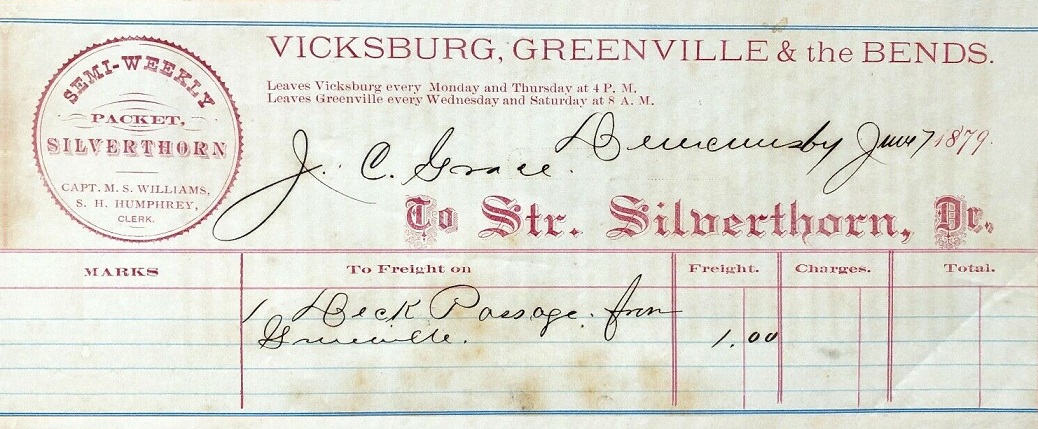 SEMI-WEEKLY
PACKET,
SILVERTHORN
CAPT. M. S. WILLIAMS,
S. H. HUMPHREY,
CLERK.
VICKSBURG, GREENVILLE & the BENDS.
Leaves Vicksburg every Monday and Thursday at 4 P. M.
Leaves Greenville every Wednesday and Saturday at 8 A. M.
June 7 1879.
J. C. Grace.
To Str. Silverthorn, Dr.
MARKS To Freight on Freight. Charges. Total.
1 Deck Passage. from
Greenville. 1.00